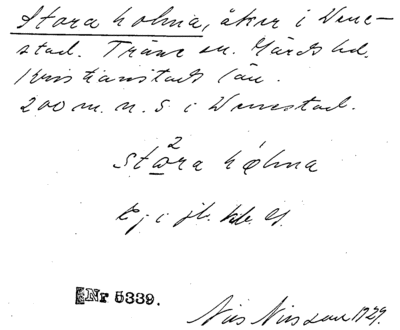 Stora holma, åker i Wene-
stad. Träne sn. Gärds hd.
Kristianstads län.
200 m. n. S i Wenestad.
2
stora hǫlma
Ej i jb.
Nr 5339.
Nils Nilsson 1929.